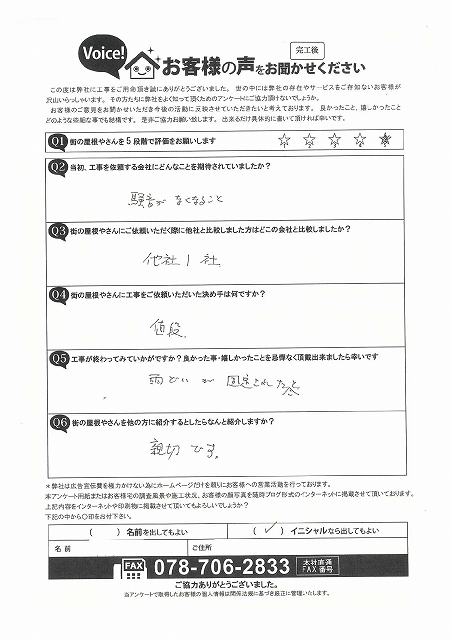 Voice!
お客様の声をお聞かせください
完工後
この度は弊社に工事をご用命頂き誠にありがとうございました。世の中には弊社の存在やサービスをご存知ないお客様が
沢山いらっしゃいます。その方たちに弊社をよく知って頂くためのアンケートにご協力頂けないでしょうか。
お客様のご意見をお聞かせいただき今後の活動に反映させていただきたいと考えております。良かったこと、嬉しかったこと
どのような些細な事でも結構です。是非ご協力お願い致します。出来るだけ具体的に書いて頂ければ幸いです。
Q1 街の屋根やさんを5段階で評価をお願いします
Q2 当初、工事を依頼する会社にどんなことを期待されていましたか?
騒音がなくなること
Q3 街の屋根やさんにご依頼いただく際に他社と比較しました方はどこの会社と比較しましたか?
他社1社
Q4 街の屋根やさんに工事をご依頼いただいた決め手は何ですか?
値段
Q5 工事が終わってみていかがですか?良かった事・嬉しかったことを忌憚なく頂戴出来ましたら幸いです
雨どいが固定されたこと
Q6 街の屋根やさんを他の方に紹介するとしたらなんと紹介しますか?
親切です。
*弊社は広告宣伝費を極力かけない為にホームページだけを頼りにお客様への営業活動を行っております。
本アンケート用紙またはお客様宅の調査風景や施工状況、お客様の顔写真を随時ブログ形式のインターネットに掲載させて頂いております。
上記内容をインターネットや印刷物に掲載させて頂いてもよろしいでしょうか?
下記の中から〇印をお付下さい。
( ) 名前を出してもよい
( ✓ ) イニシャルなら出してもよい
名前
ご住所
FAX 078-706-2833 本社直通 FAX番号
ご協力ありがとうございました。
当アンケートで取得したお客様の個人情報は関係法規に基づき厳正に管理いたします。